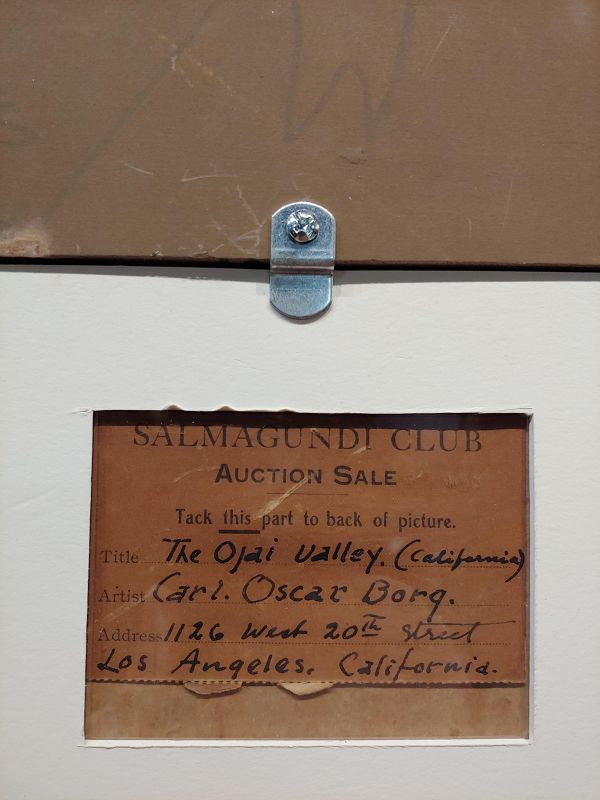 SALMAGUNDI CLUB
AUCTION SALE
Tack this part to back of picture.
Title The Ojai Valley. (California)
Artist Carl. Oscar Borg.
Address 1126 West 20th Street
Los Angeles. California.